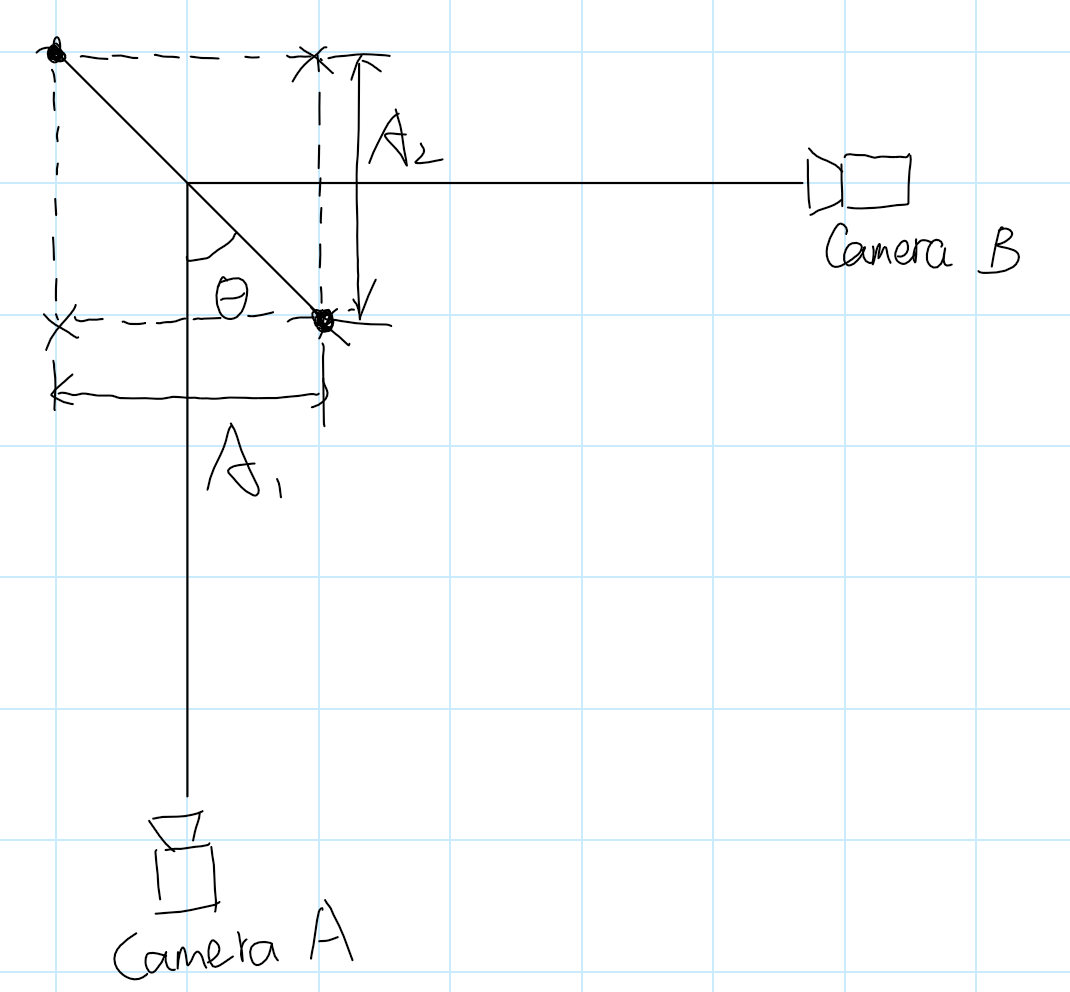 A2
Camera B
θ
A1
Camera A